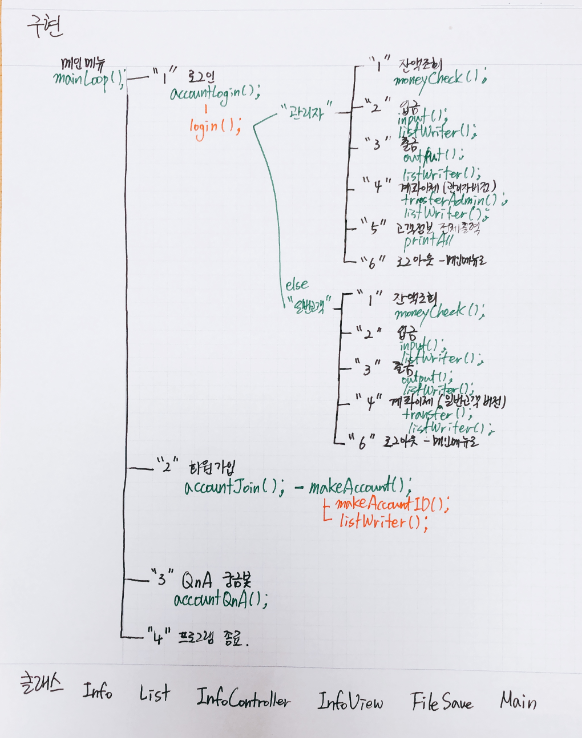 구현
메인메뉴
mainLoop();
"1" 로그인
accountLogin();
login();
"관리자"
"1" 잔액조회
moneyCheck();
"2" 입금
input();
listWriter();
"3" 출금
output();
listWriter();
"4" 계좌이체 (관리자버전)
transferAdmin();
listWriter();
"5" 고객정보 전체출력
printAll
"6" 로그아웃 - 메인메뉴로
else
"일반고객"
"1" 잔액조회
moneyCheck();
"2" 입금
input();
listWriter();
"3" 출금
output();
listWriter();
"4" 계좌이체 (일반고객 버전)
transfer();
listWriter();
"6" 로그아웃 - 메인메뉴로
"2" 회원가입
accountJoin(); - makeAccount();
makeAccountID();
listWriter();
"3" QnA 궁금봇
accountQnA();
"4" 프로그램 종료.
클래스 Info List InfoController InfoView FileSave Main